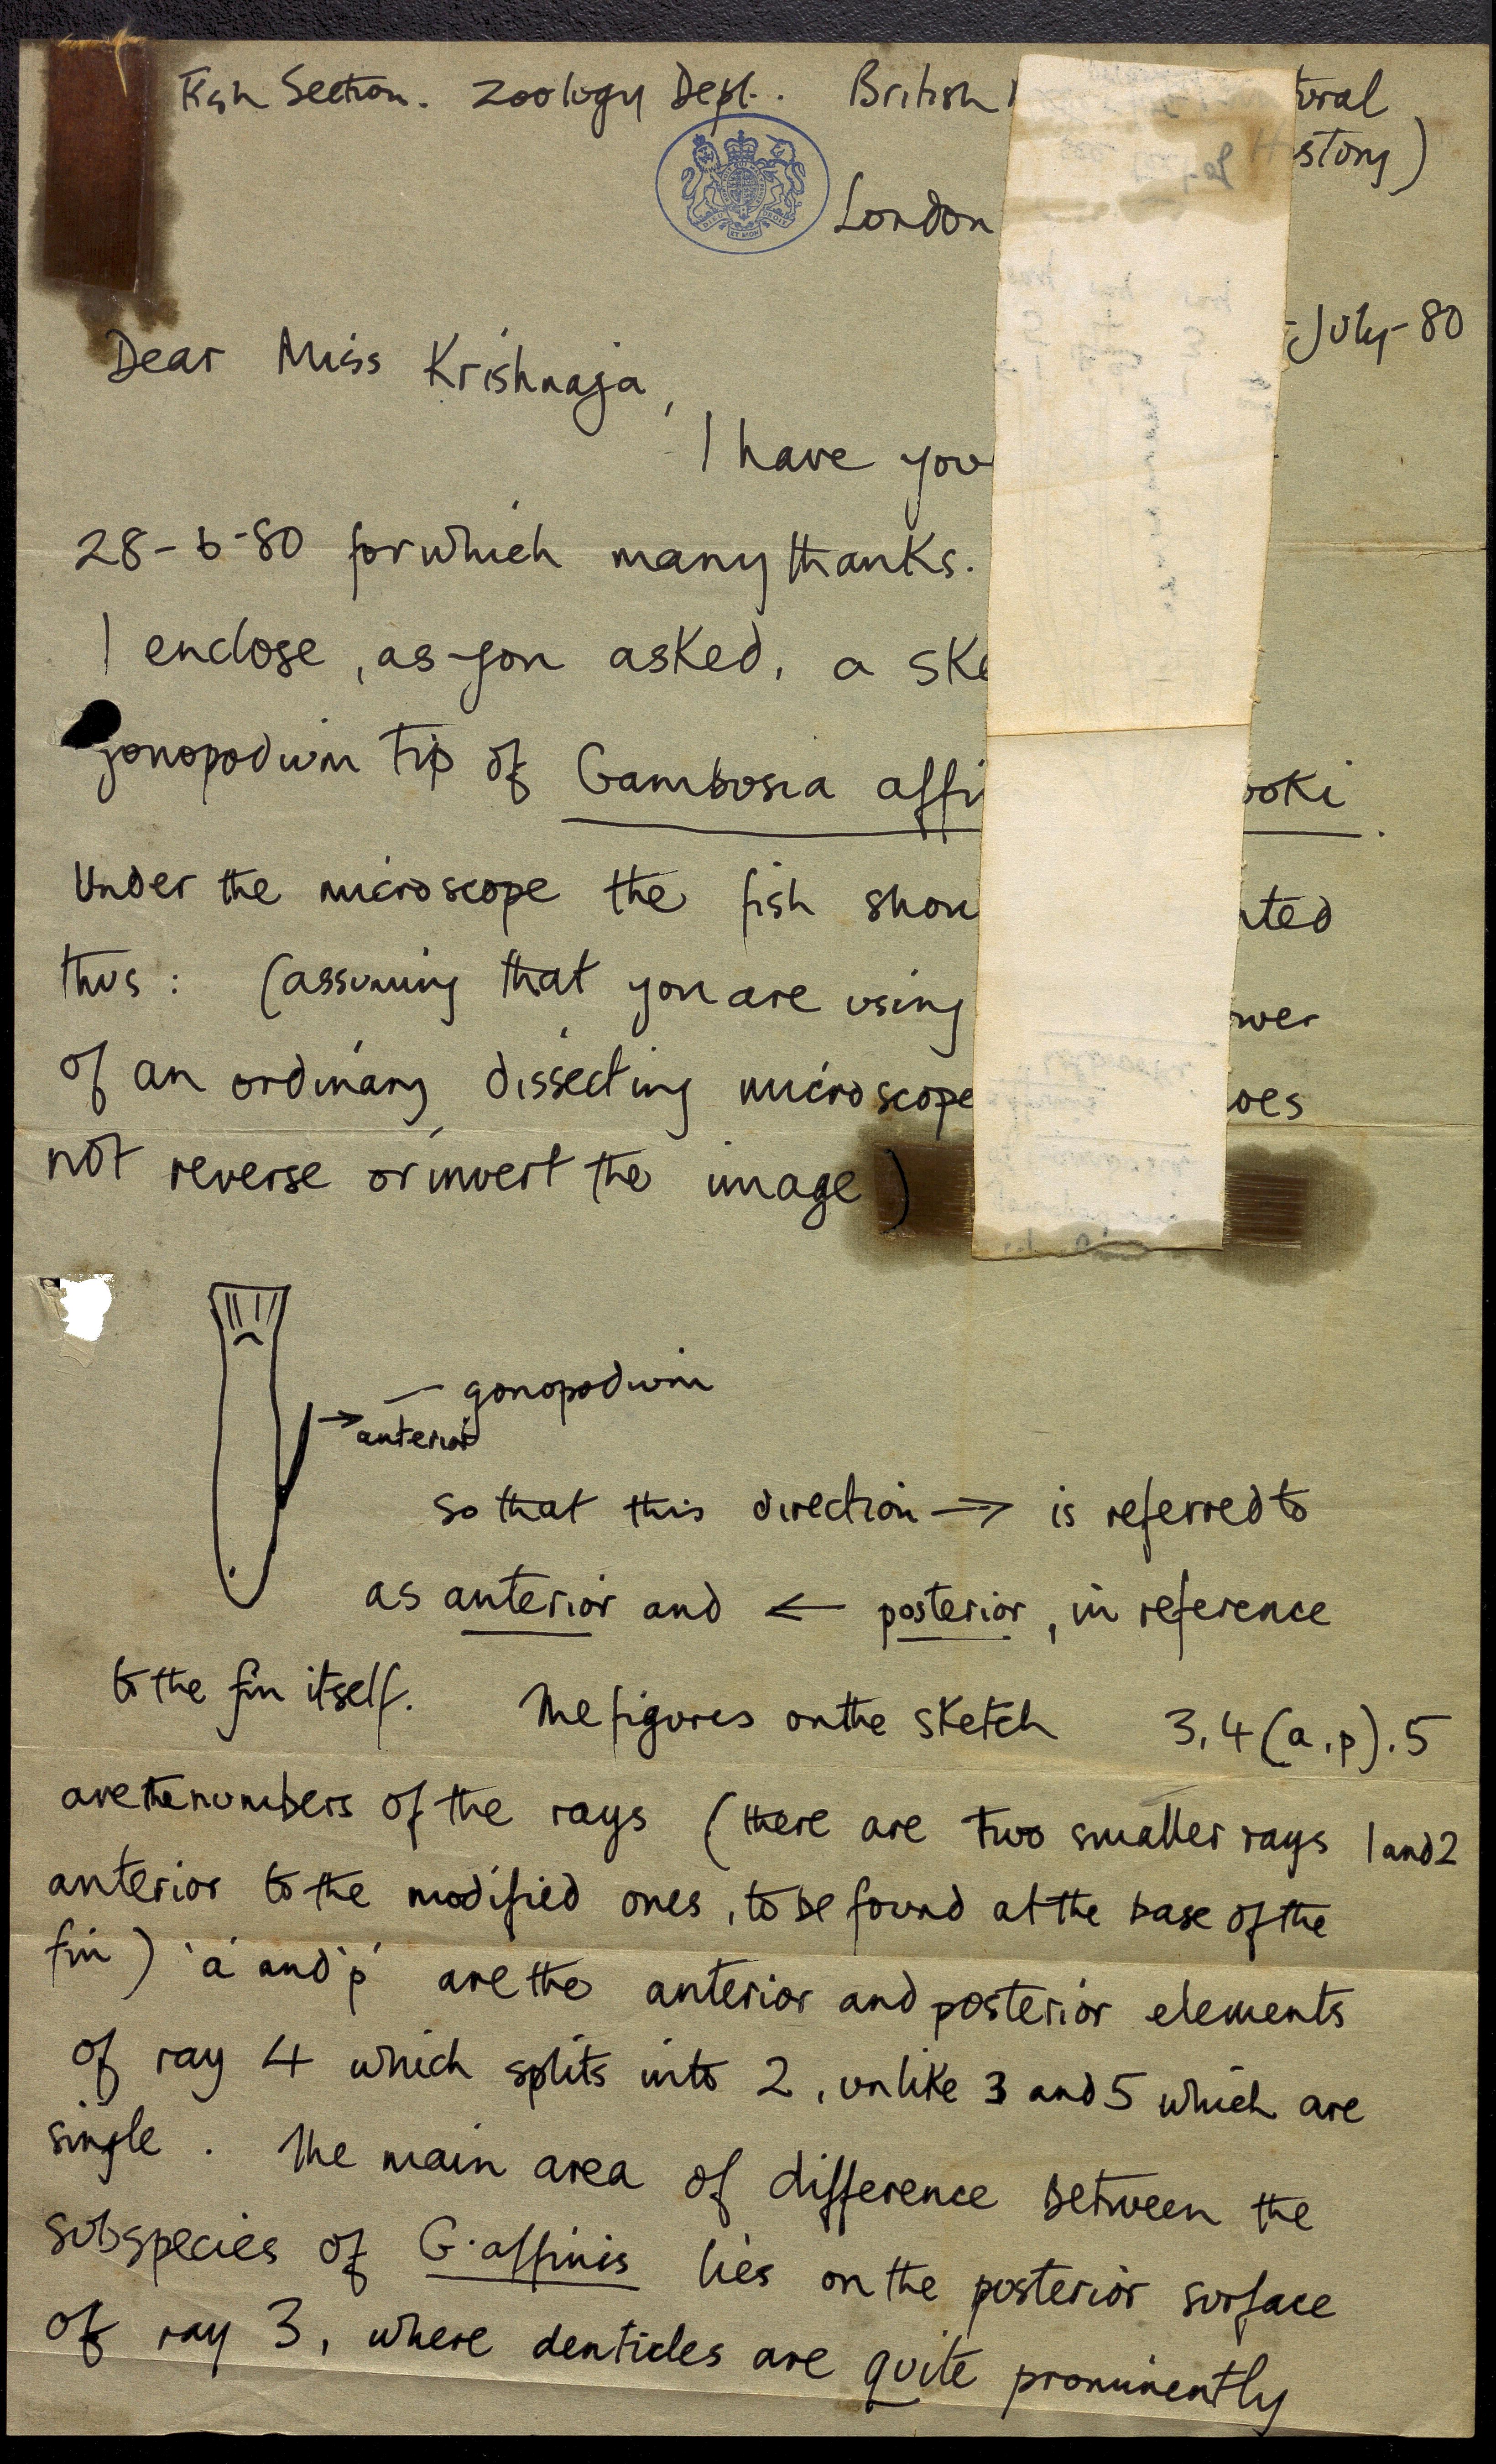 Fish Section. Zoology Dept. British
tural
History)
London
-July-80
Dear Miss Krishnaja,
I have you
28-6-80 for which many thanks.
I enclose, as you asked, a ske
gonopodium tip of Gambusia affi ooki.
Under the microscope the fish shou nted
thus: (assuming that you are using wer
of an ordinary dissecting microscope oes
not reverse or invert the image)
— gonopodium
→ anterior
so that this direction → is referred to
as anterior and ← posterior, in reference
to the fin itself. The figures on the sketch 3,4(a,p).5
are the numbers of the rays (there are two smaller rays 1 and 2
anterior to the modified ones, to be found at the base of the
fin) 'a' and 'p' are the anterior and posterior elements
of ray 4 which splits into 2, unlike 3 and 5 which are
single. The main area of difference between the
subspecies of G. affinis lies on the posterior surface
of ray 3, where denticles are quite prominently